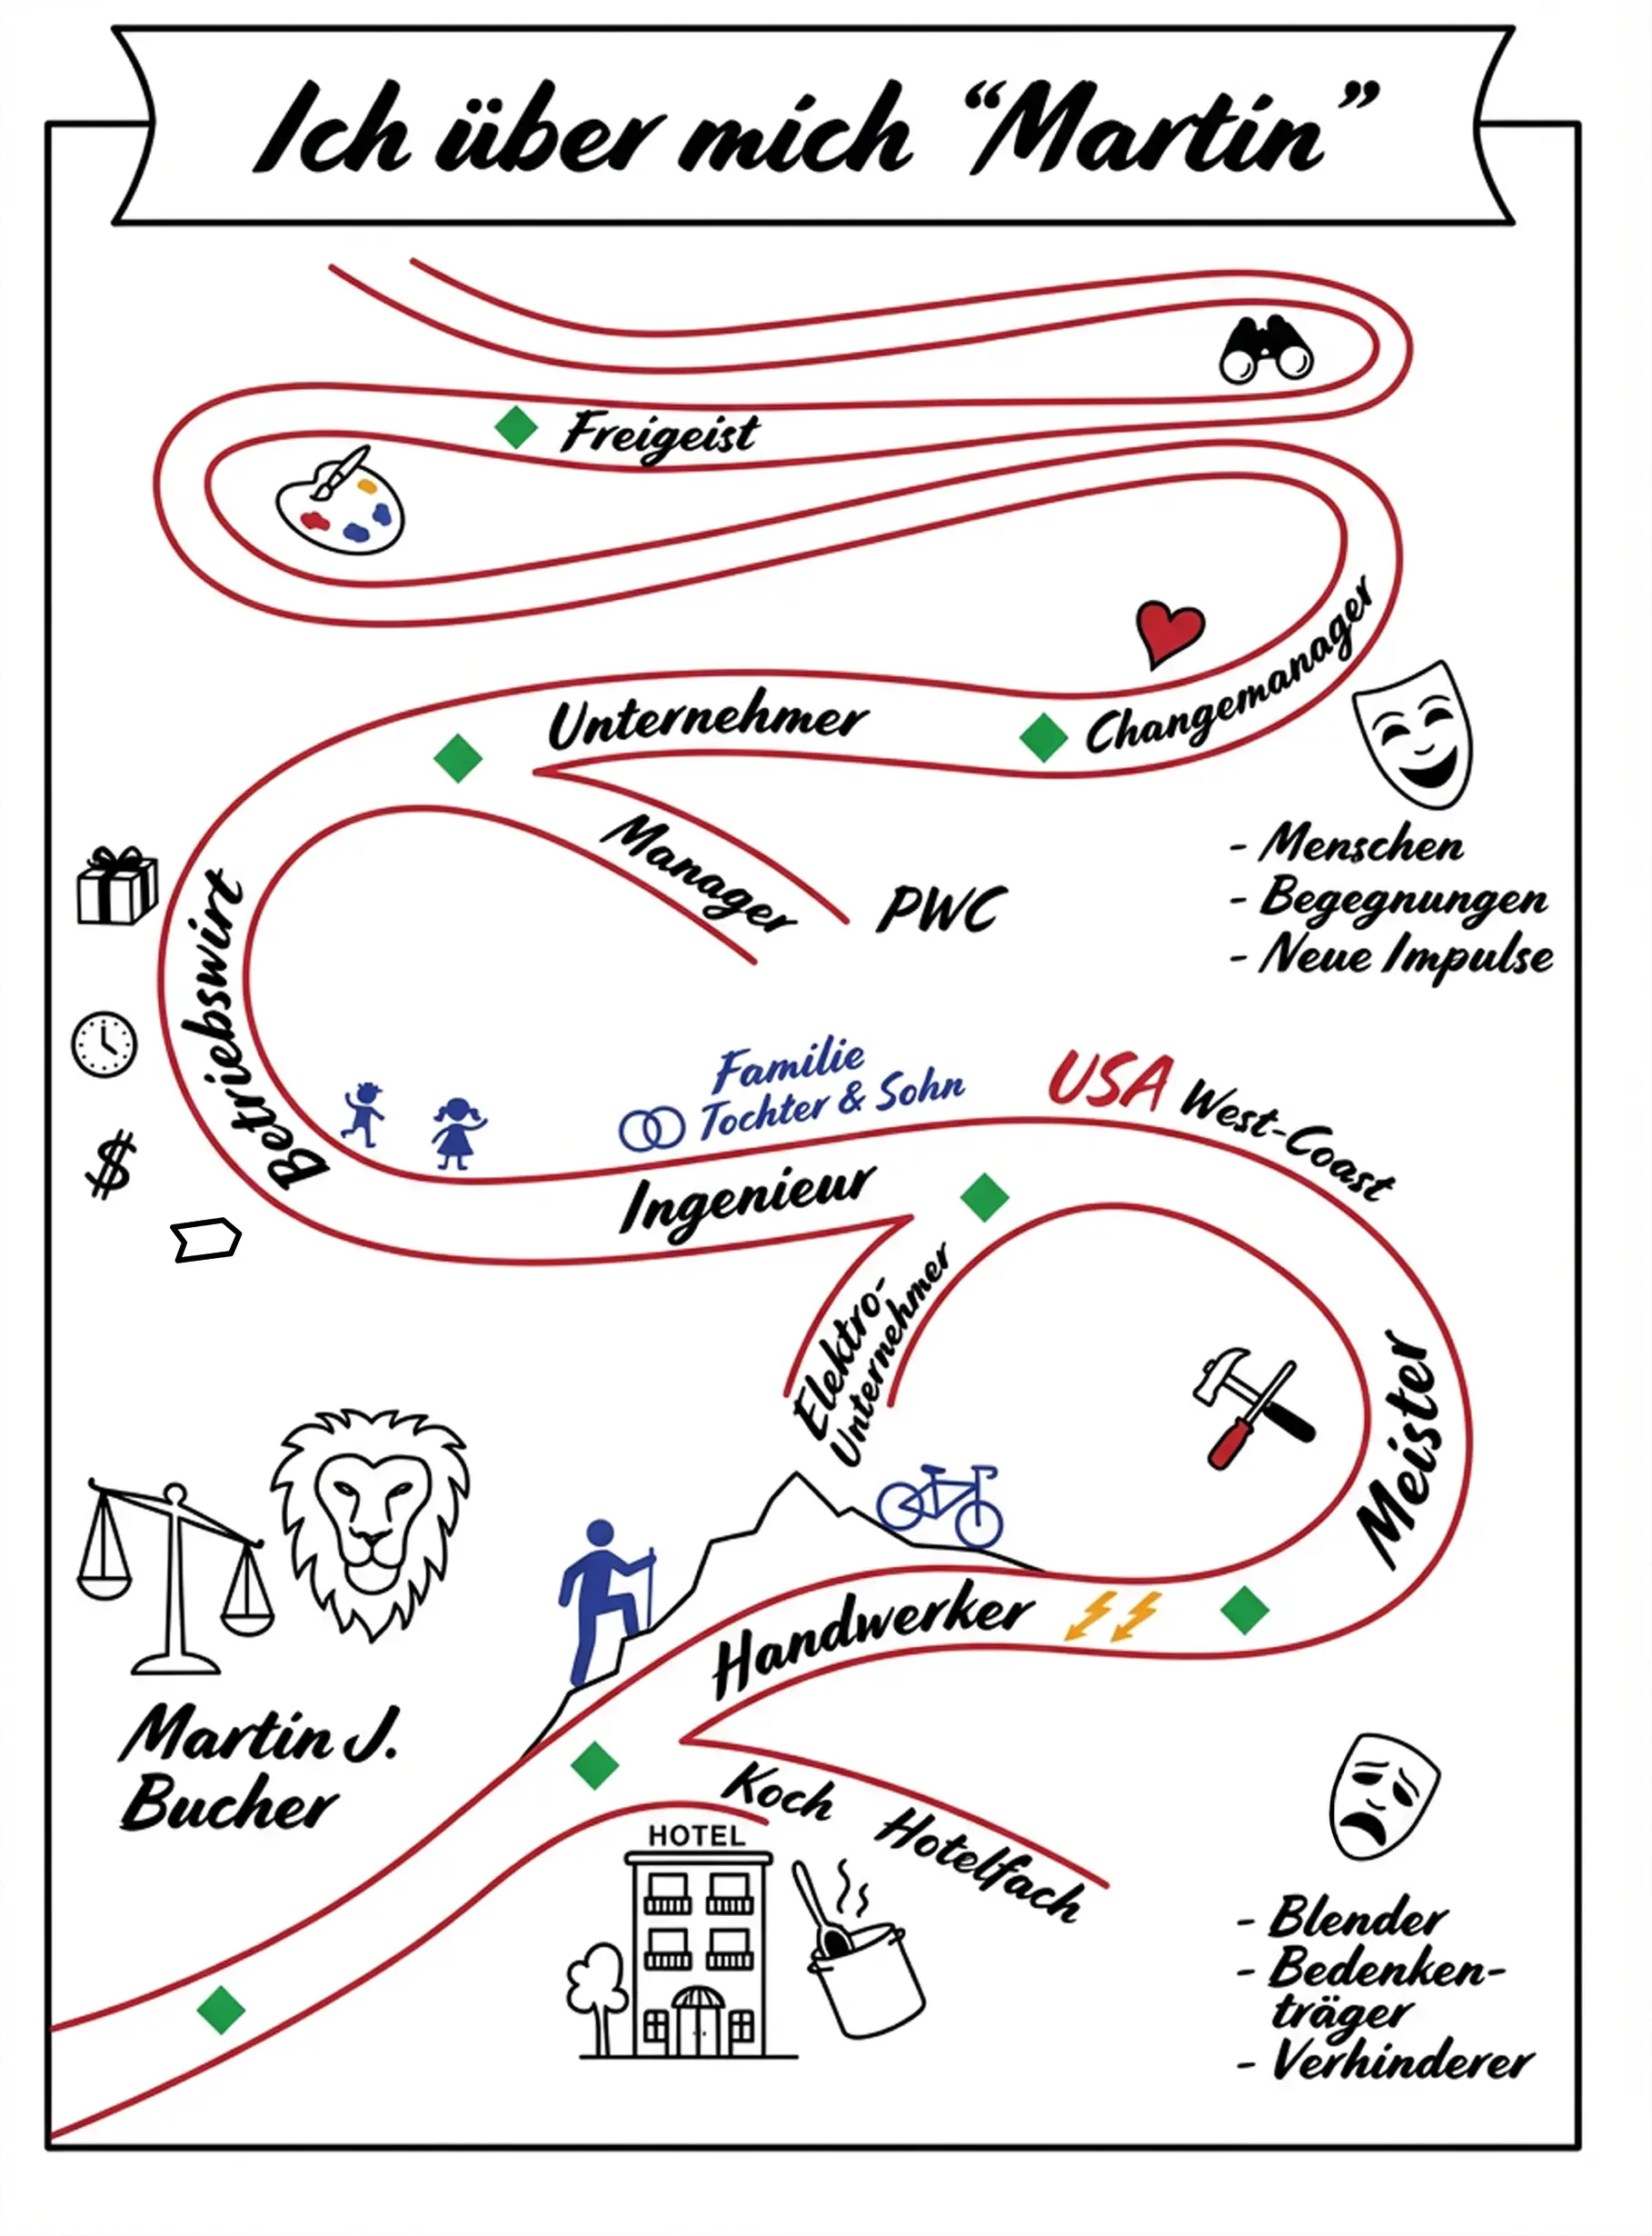 Ich über mich “Martin”
Freigeist
Changemanager
Unternehmer
Manager
PWC
- Menschen
- Begegnungen
- Neue Impulse
Betriebswirt
$
Familie
Tochter & Sohn
USA West-Coast
Ingenieur
Elektro-
Unternehmer
Meister
Handwerker
Martin J.
Bucher
Koch Hotelfach
HOTEL
- Blender
- Bedenken-
träger
- Verhinderer